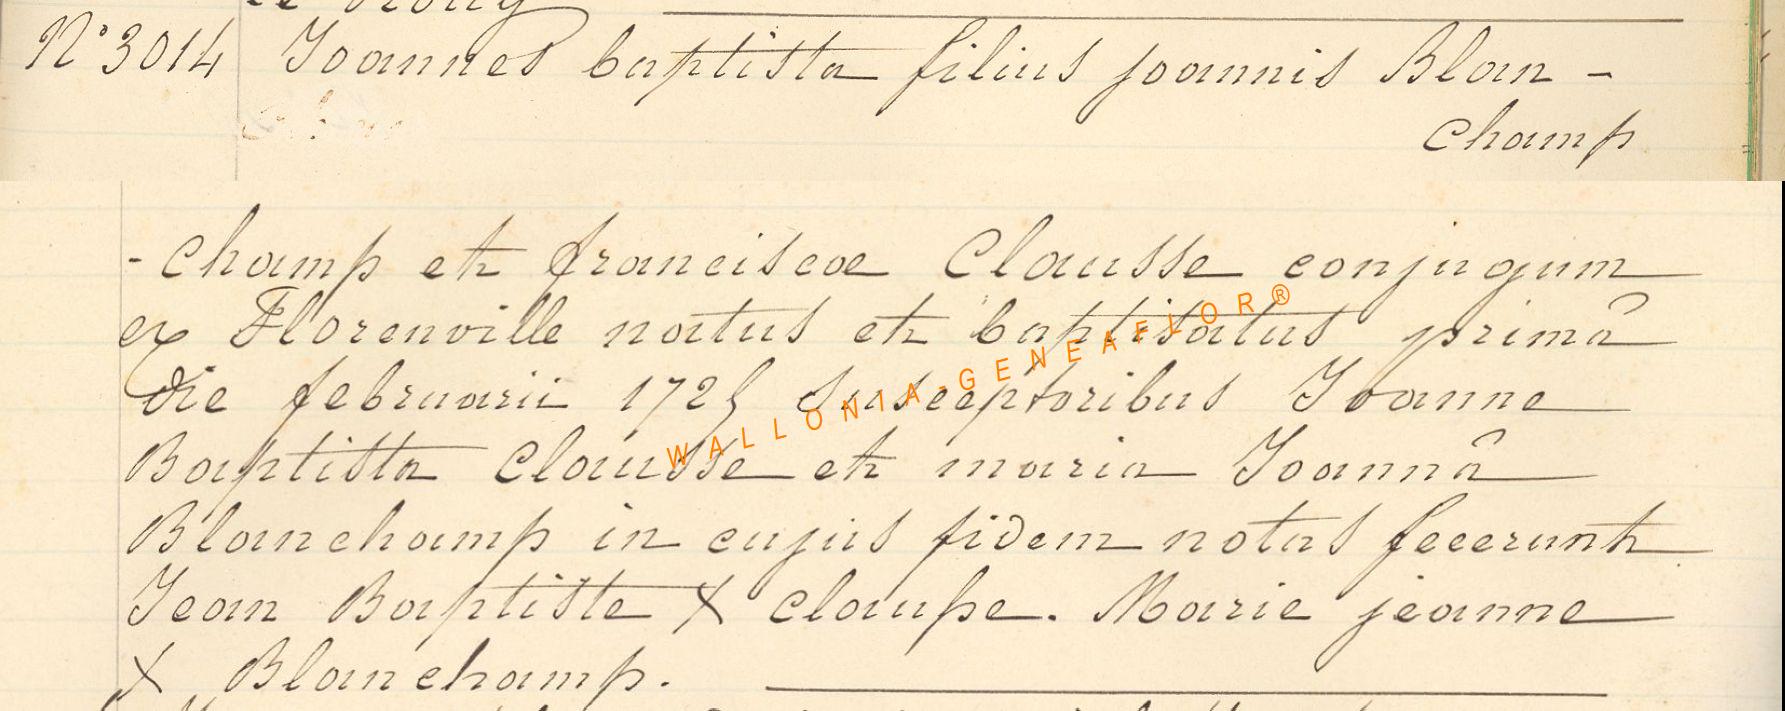 N° 3014 Joannes baptista filius joannis Blan -
champ
- champ et franciscae Clausse conjugum
ex Florenville natus et baptisatus primâ
die februarii 172 Susceptoribus Joanne
Baptista Clausse et maria Joannâ
Blanchamp in cujus fidem notas fecerunt
Jean Baptiste X clausse. Marie jeanne
X Blanchamp.
WALLONIA-GENEAFLOR®